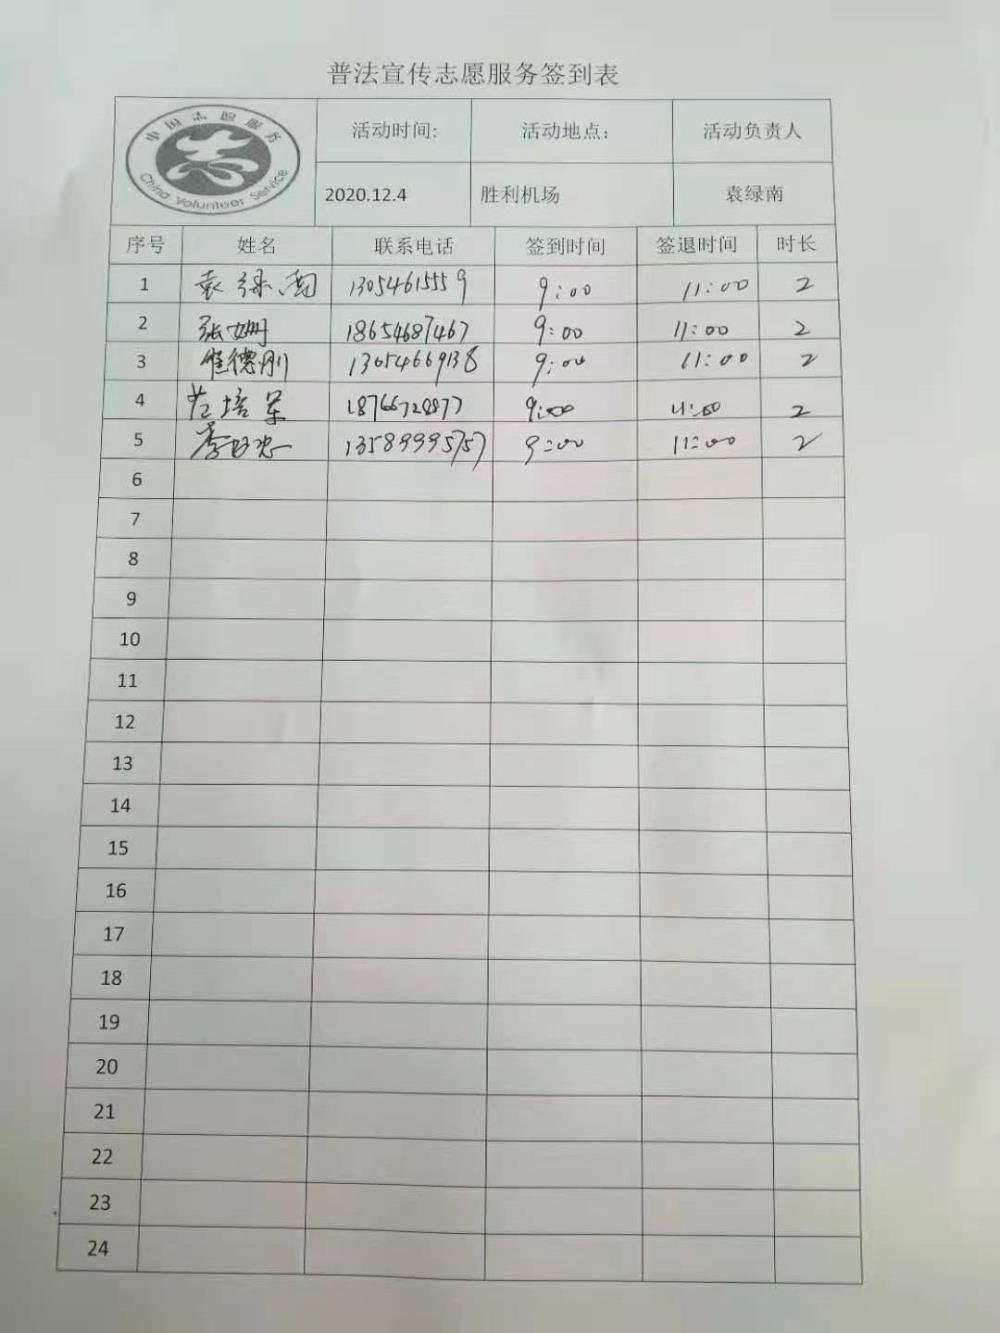 普法宣传志愿服务签到表
中国志愿服务
China Volunteer Service
活动时间: 活动地点: 活动负责人
2020.12.4 胜利机场 袁绿南
序号 姓名 联系电话 签到时间 签退时间 时长
1 袁绿南 13054615559 9:00 11:00 2
2 张姗 18654687467 9:00 11:00 2
3 德刚 13054669138 9:00 11:00 2
4 培军 9:00 11:00 2
5 李 13589995757 9:00 11:00 2
6
7
8
9
10
11
12
13
14
15
16
17
18
19
20
21
22
23
24